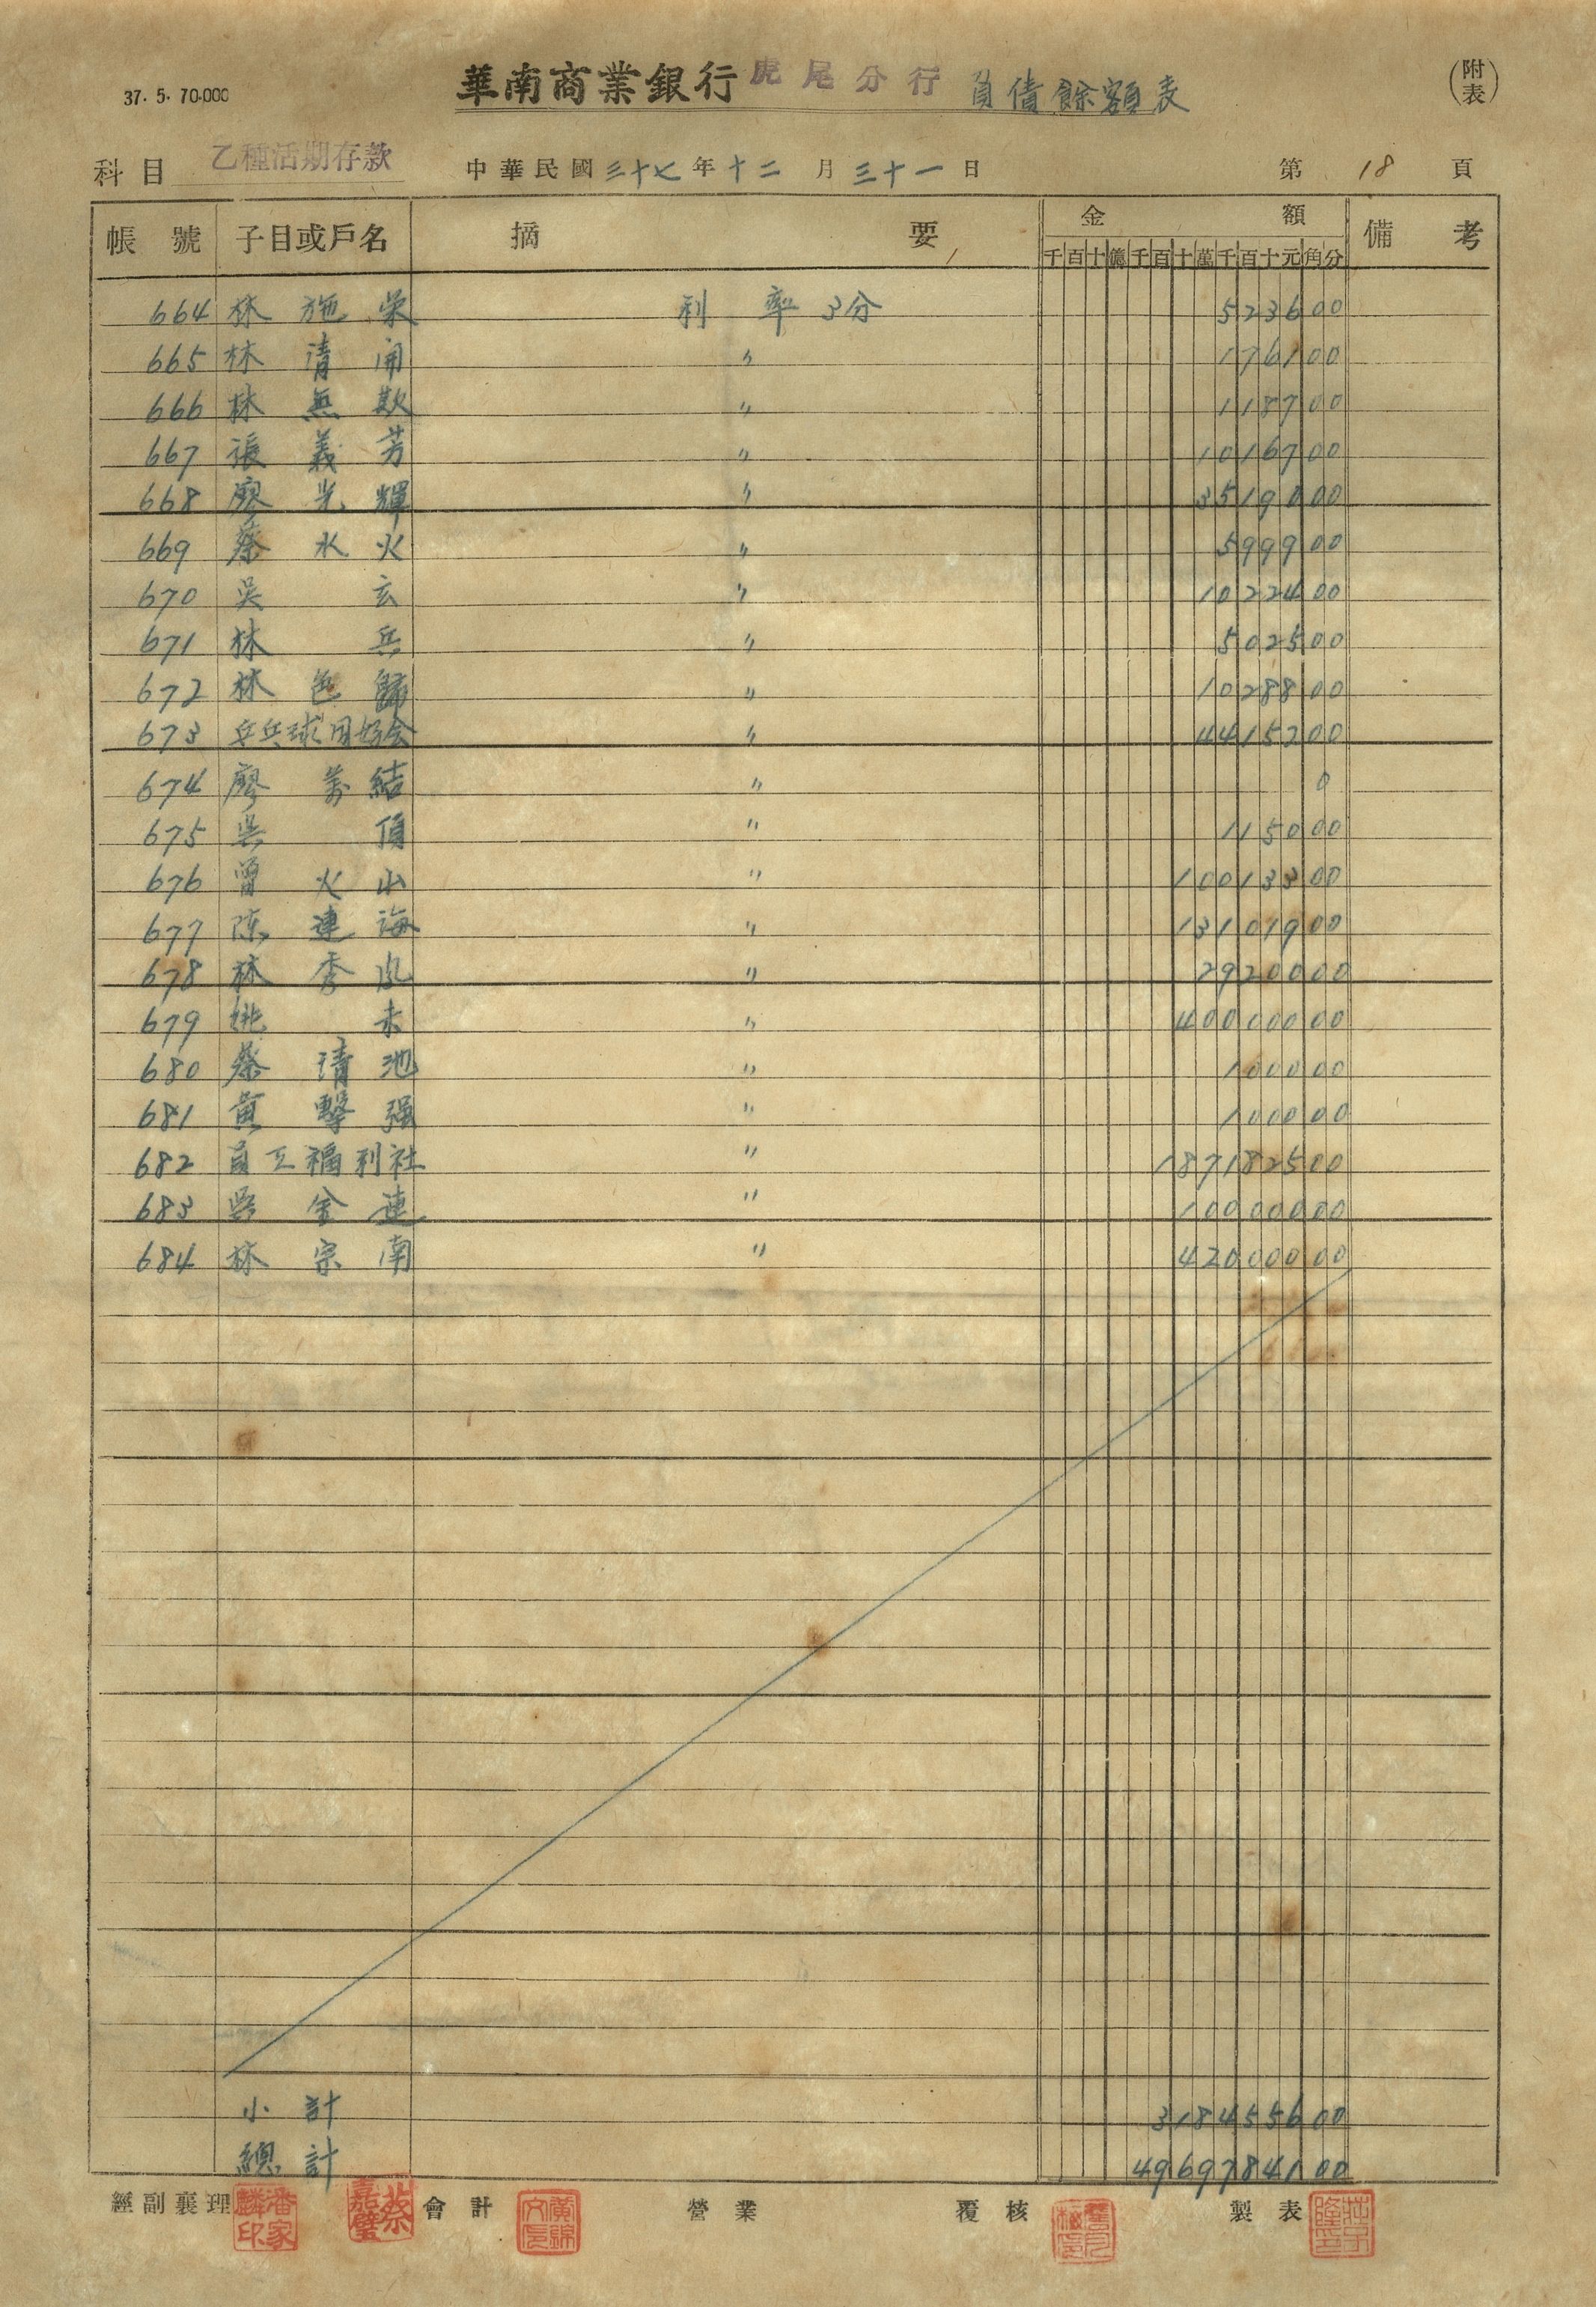 37. 5. 70.000
華南商業銀行 虎尾分行 負債餘額表
(附表)
科目 乙種活期存款 中華民國三十七年十二月三十一日 第18頁
帳號 子目或戶名 摘要 金額 備考
千百十億千百十萬千百十元角分
664 林施栄 利率3分 5236 00
665 林清開 〃 1761 00
666 林無欺 〃 1187 00
667 張義芳 〃 10167 00
668 廖光輝 〃 35190 00
669 蔡水火 〃 5999 00
670 吳玄 〃 10224 00
671 林兵 〃 5025 00
672 林色歸 〃 10288 00
673 乒乓球同好会 〃 44152 00
674 廖萬結 〃 0
675 吳頂 〃 1150 00
676 曾火山 〃 100133 00
677 陈連海 〃 131019 00
678 林秀凤 〃 29200 00
679 姚未 〃 400000 00
680 蔡清池 〃 1000 00
681 黃擊强 〃 1000 00
682 員工福利社 〃 1871825 00
683 吳金連 〃 100000 00
684 林宗南 〃 420000 00
小計 3184556 00
總計 49697841 00
經副襄理 潘家麟印 蔡嘉璧 會計 營業 覆核 製表